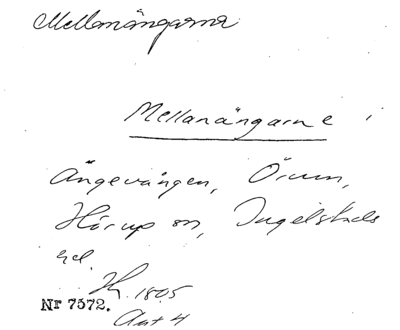 Mellanängarna
Mellanängarne i
Ängevången, Örum,
Hörup sn, Ingelstads
hd.
1805
Nr 7572.
Akt 4